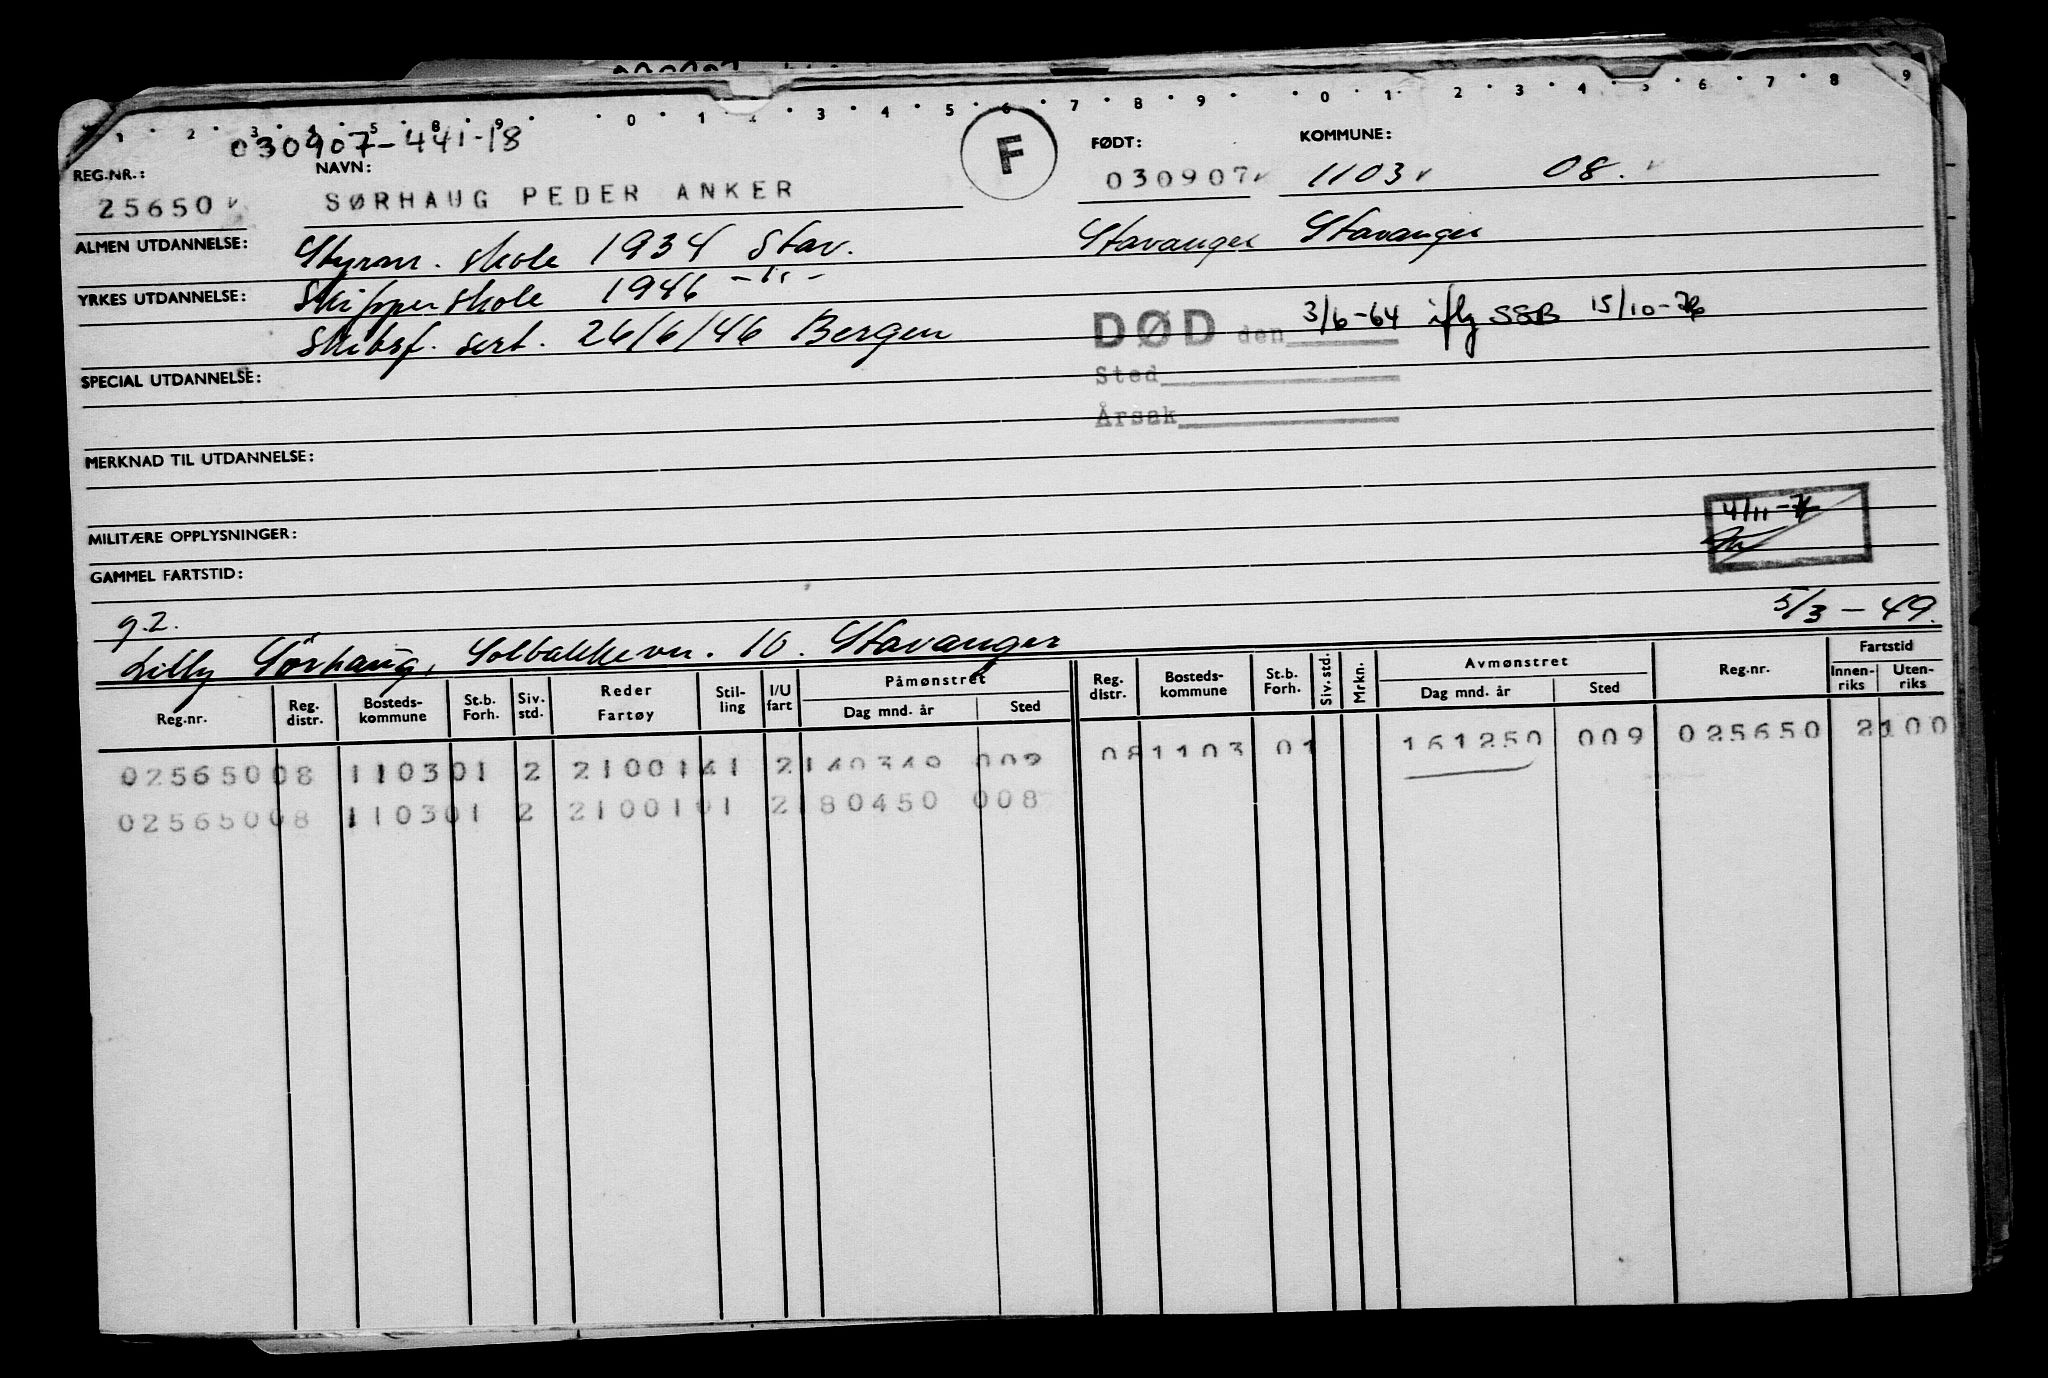 1 2 3 4 5 8 9 0 1 2 3 4 5 6 7 8 9 0 1 2 3 4 5 6 7 8 9
030907-441-18
REG.NR.: NAVN: F FØDT: KOMMUNE:
25650 v SØRHAUG PEDER ANKER 030907 v 1103 v 08. v
ALMEN UTDANNELSE: Styrm. skole 1934 Stav. Stavanger Stavanger
YRKES UTDANNELSE: Skipperskole 1946 -"-
Skibsf. sert. 26/6/46 Bergen DØD den 3/6-64 iflg SSB 15/10-
SPECIAL UTDANNELSE: Sted
Årsak
MERKNAD TIL UTDANNELSE:
4/11-
MILITÆRE OPPLYSNINGER:
GAMMEL FARTSTID:
g.2. 5/3-49.
Lilly Sörhaug, Solbakkevn. 10. Stavanger
Reg.nr. Reg. distr. Bosteds-kommune St.b. Forh. Siv. std. Reder Fartøy Stil-ling I/U fart Påmønstret Dag mnd. år Sted Reg. distr. Bosteds-kommune St.b. Forh. Siv. std. Mrkn. Avmønstret Dag mnd. år Sted Reg.nr. Fartstid Innen-riks Uten-riks
025650 08 1103 01 2 2100141 2 140349 009 08 1103 01 161250 009 025650 2100
025650 08 1103 01 2 2100101 2 180450 008